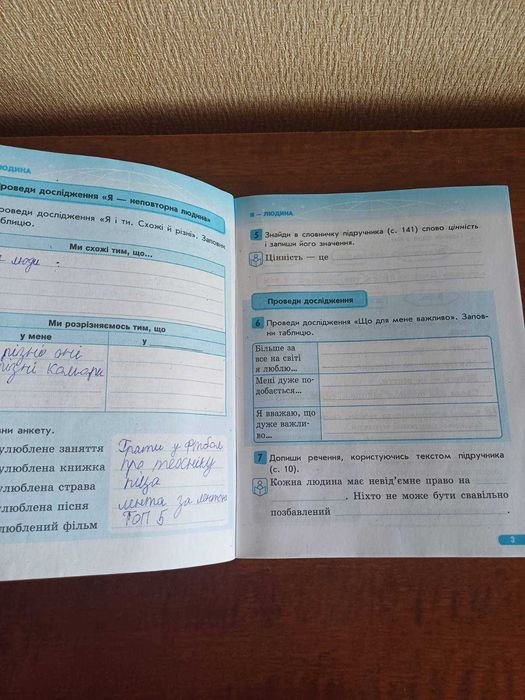 ЛЮДИНА
Проведи дослідження «Я — неповторна людина»
Проведи дослідження «Я і ти. Схожі й різні». Заповни
таблицю.
Ми схожі тим, що...
люди
Ми розрізняємось тим, що
у мене
у
різні
різні
анкету.
улюблене заняття
Грати у футбол
улюблена книжка
про
улюблена страва
піца
улюблена пісня
за
улюблений фільм
ТОП 5
Я — ЛЮДИНА
5 Знайди в словничку підручника (с. 141) слово цінність
і запиши його значення.
Цінність — це
Проведи дослідження
6 Проведи дослідження «Що для мене важливо». Запов-
ни таблицю.
Більше за
все на світі
я люблю...
Мені дуже по-
добається...
Я вважаю, що
дуже важли-
во...
7 Допиши речення, користуючись текстом підручника
(с. 10).
Кожна людина має невід'ємне право на
. Ніхто не може бути свавільно
позбавлений
3